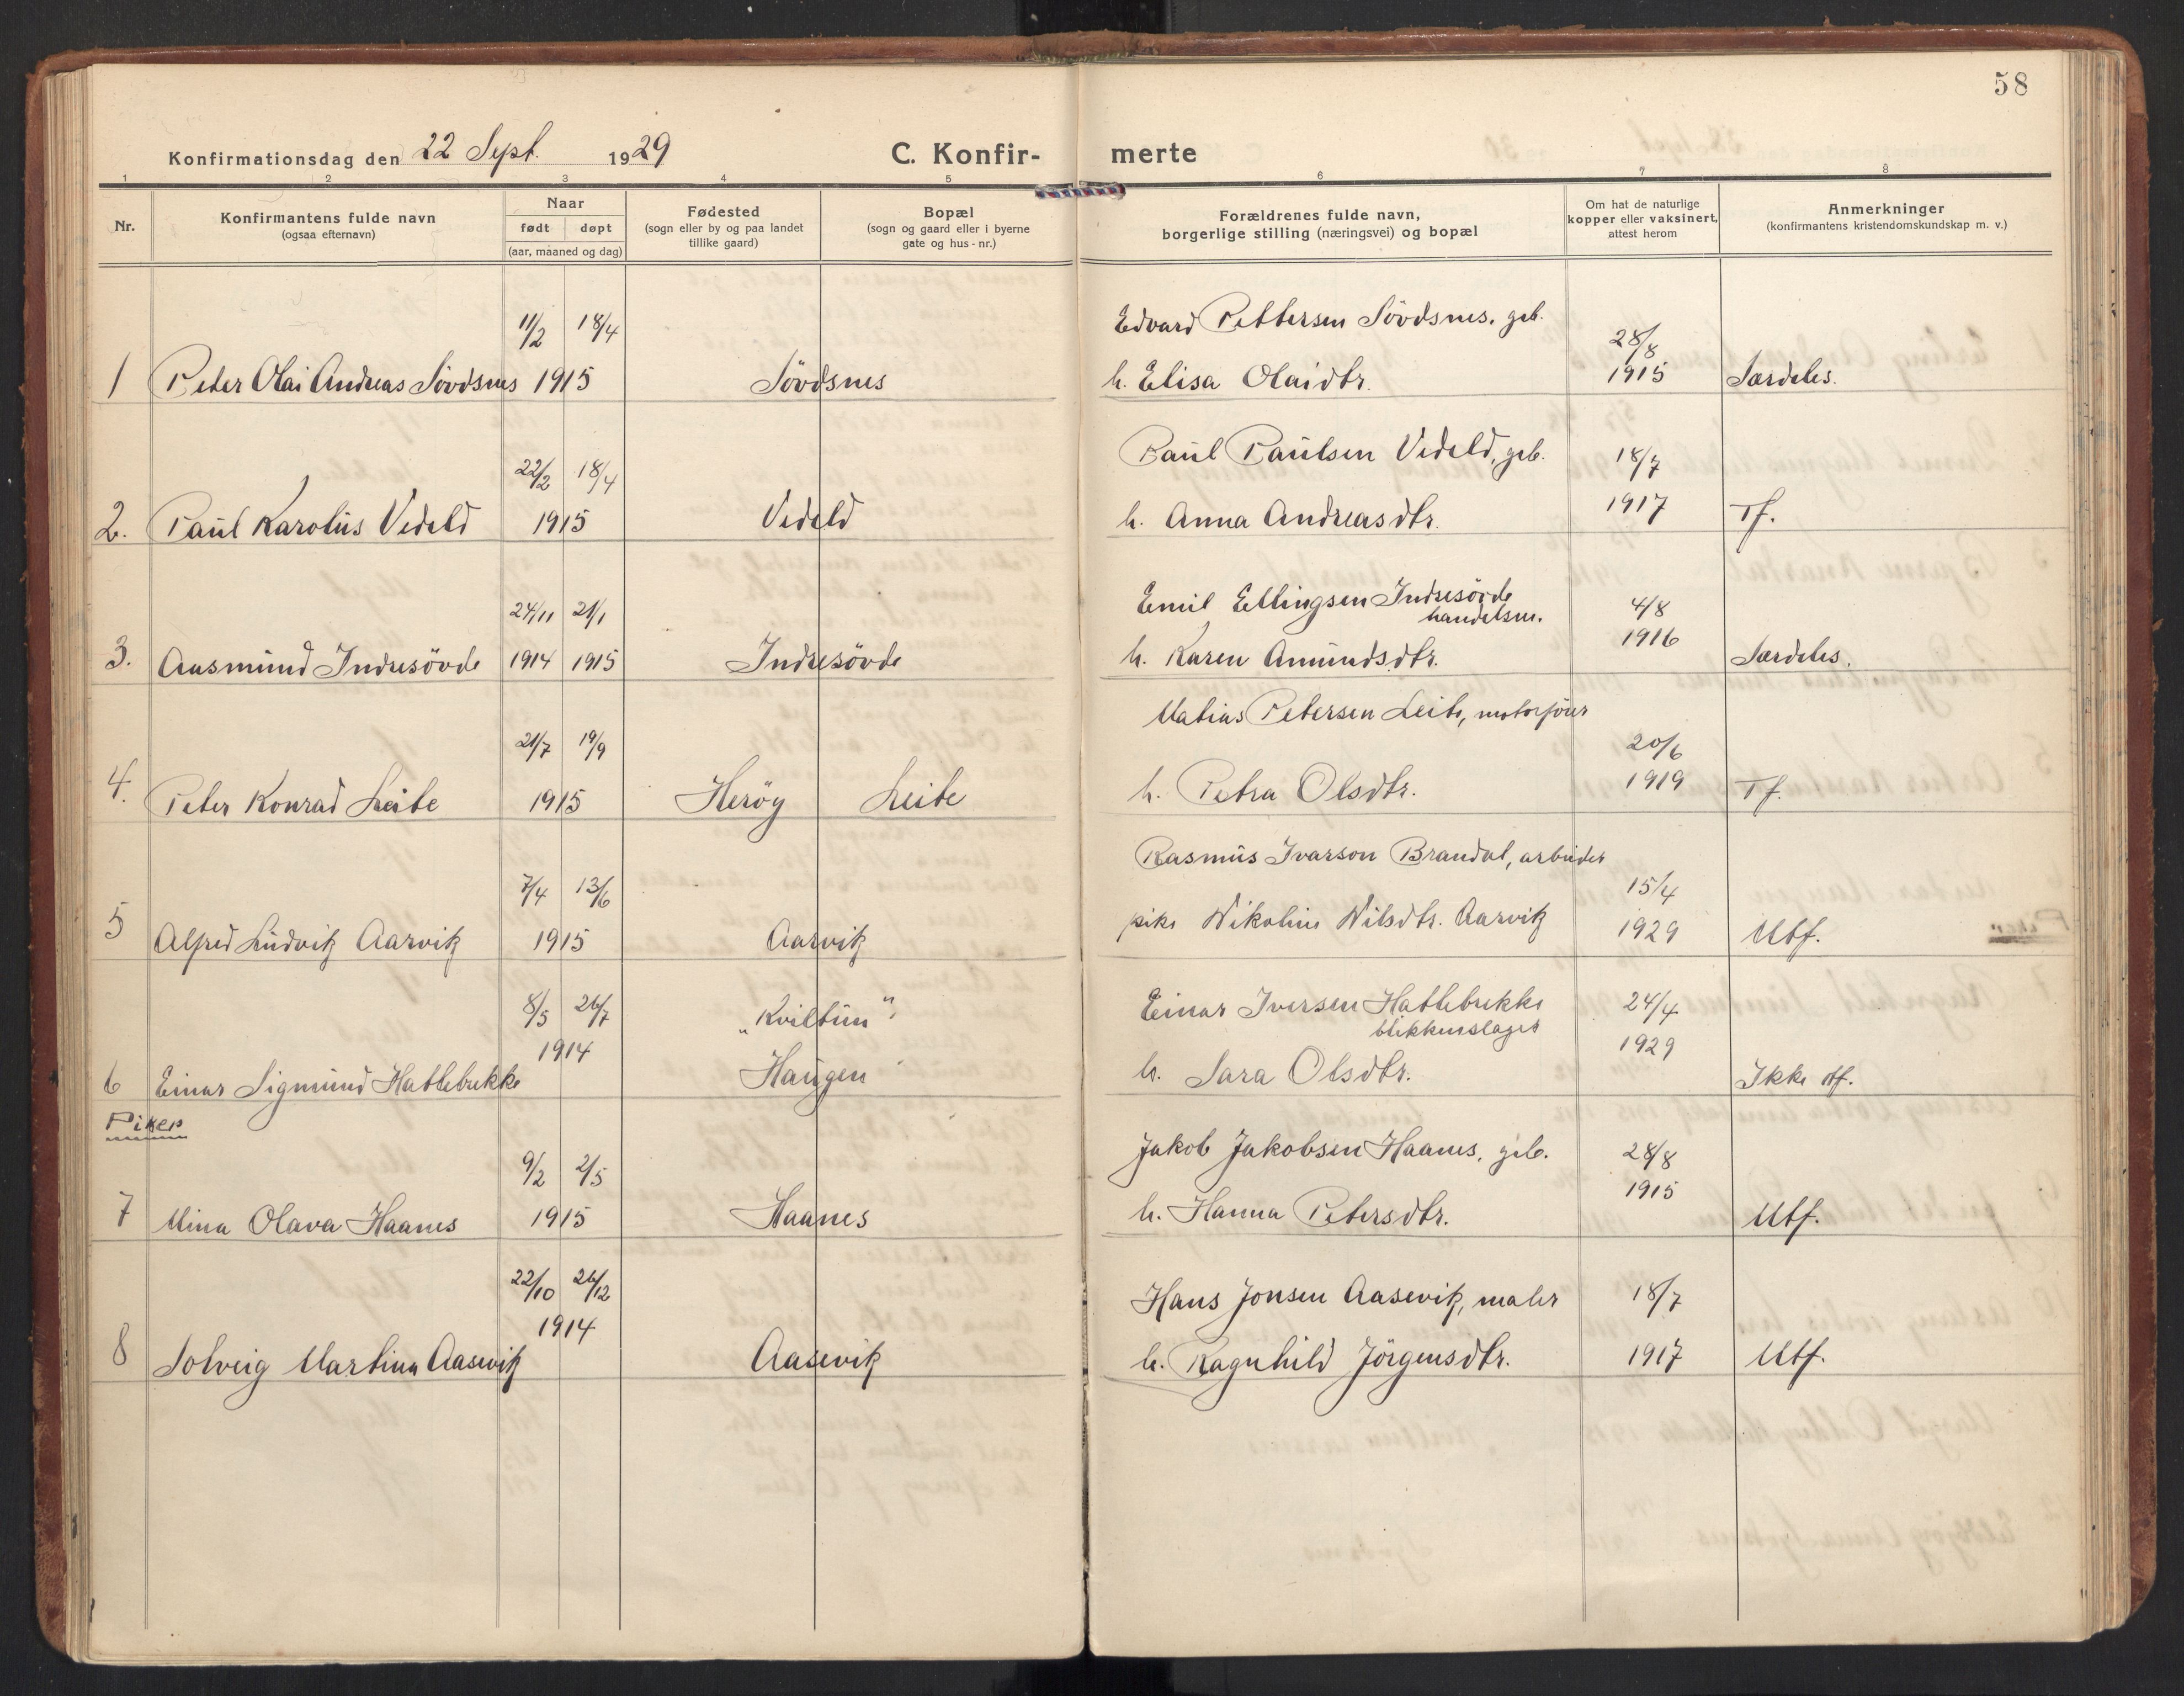 58
Konfirmationsdag den 22 Sept. 1929
C. Konfir-
merte
1 2 3 4 5 6 7 8
Nr.
Konfirmantens fulde navn
(ogsaa efternavn)
Naar
født døpt
(aar, maaned og dag)
Fødested
(sogn eller by og paa landet
tillike gaard)
Bopæl
(sogn og gaard eller i byerne
gate og hus-nr.)
Forældrenes fulde navn,
borgerlige stilling (næringsvei) og bopæl
Om hat de naturlige
kopper eller vaksinert,
attest herom
Anmerkninger
(konfirmantens kristendomskundskap m. v.)
11/2 18/4 Edvard Pettersen Sövdsnes, gb. 28/8
1 Peter Olai Andreas Sövdsnes 1915 Sövdsnes h. Elisa Olaidtr. 1915 Særdeles.
22/2 18/4 Paul Paulsen Vedeld, gb. 18/7
2. Paul Karolus Vedeld 1915 Vedeld h. Anna Andreasdtr. 1917 Tf.
24/11 21/1 Emil Ellingsen Indresövde 4/8
handelsm.
3. Aasmund Indresövde 1914 1915 Indresövde h. Karen Amundsdtr. 1916 Særdeles.
21/7 19/9 Matias Petersen Leite, motorförer 20/6
4. Peter Konrad Leite 1915 Heröy Leite h. Petra Olsdtr. 1919 Tf.
7/4 13/6 Rasmus Ivarson Brandal, arbeider 15/4
5 Alfred Ludvik Aarvik 1915 Aarvik pike Nikoline Nilsdtr. Aarvik 1929 Mtf.
8/5 26/7 "Kviltun" Einar Iversen Hatlebrekke 24/4
blikkenslager
1914 1929
6 Einar Sigmund Hatlebrekke Haugen h. Sara Olsdtr. Ikke tf.
Piker
9/2 2/5 Jakob Jakobsen Haanes, gb. 28/8
7 Mina Olava Haanes 1915 Haanes h. Hanna Petersdtr. 1915 Mtf.
22/10 26/12 Hans Jonsen Aasevik, maler 18/7
1914
8 Solveig Martina Aasevik Aasevik h. Ragnhild Jörgensdtr. 1917 Mtf.